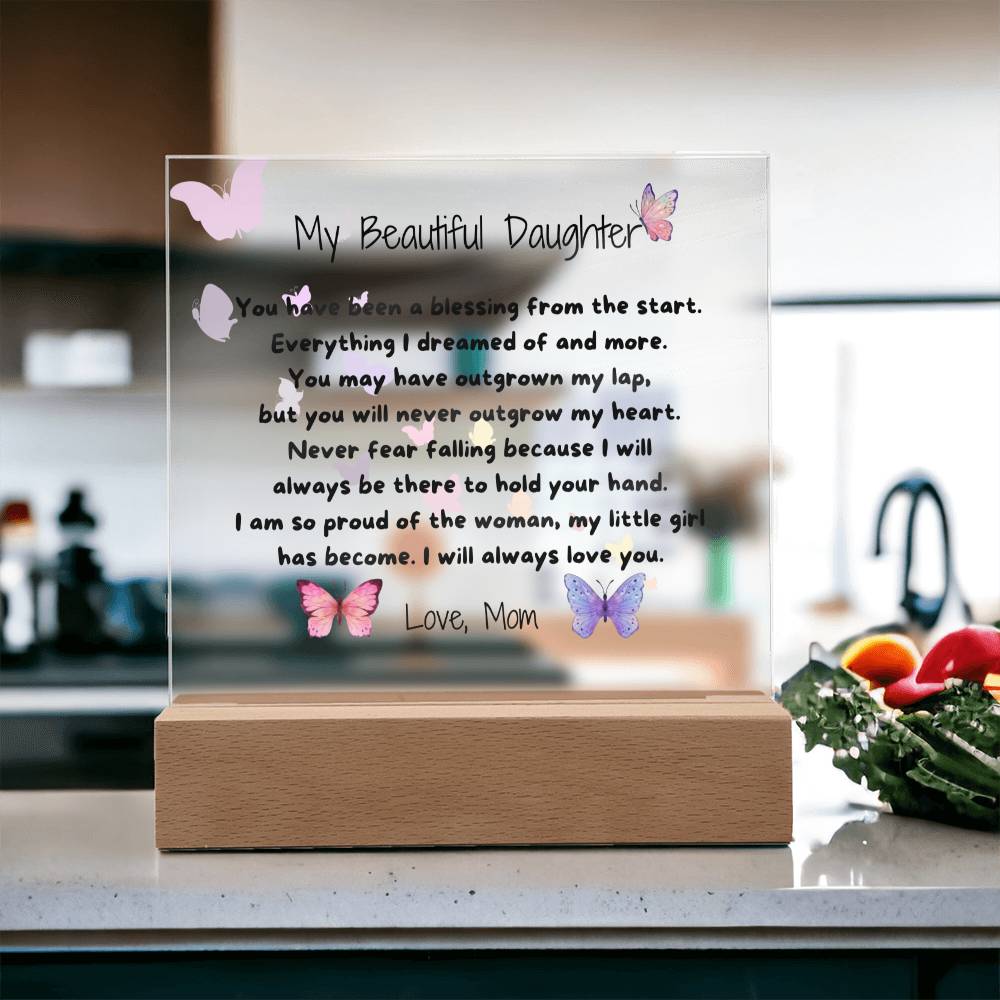 My Beautiful Daughter
You have been a blessing from the start.
Everything I dreamed of and more.
You may have outgrown my lap,
but you will never outgrow my heart.
Never fear falling because I will
always be there to hold your hand.
I am so proud of the woman, my little girl
has become. I will always love you.
Love, Mom